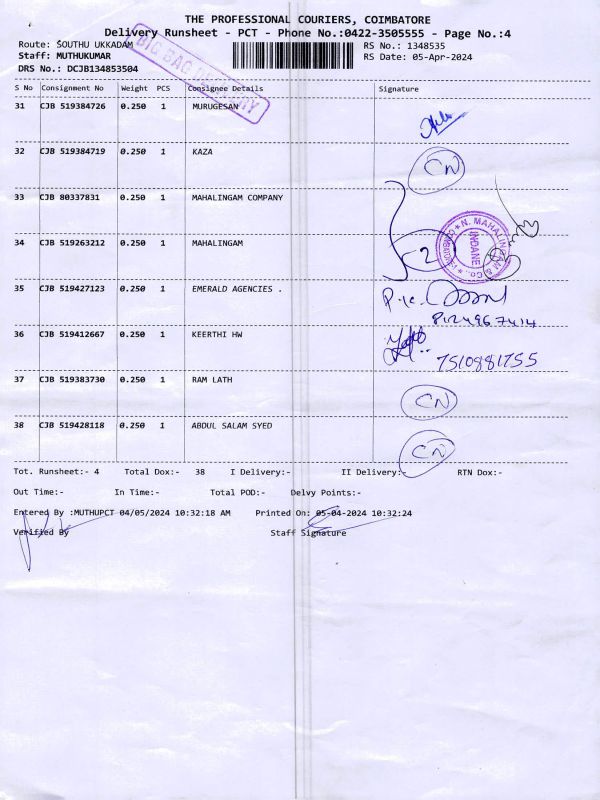 THE PROFESSIONAL COURIERS, COIMBATORE
Delivery Runsheet - PCT - Phone No.:0422-3505555 - Page No.:4
Route: SOUTHU UKKADAM RS No.: 1348535
Staff: MUTHUKUMAR RS Date: 05-Apr-2024
DRS No.: DCJB134853504
BIG BAG
S No Consignment No Weight PCS Consignee Details Signature
31 CJB 519384726 0.250 1 MURUGESAN
32 CJB 519384719 0.250 1 KAZA CN
33 CJB 80337831 0.250 1 MAHALINGAM COMPANY
34 CJB 519263212 0.250 1 MAHALINGAM 2
N. MAHALINGAM & Co.,
INDANE
35 CJB 519427123 0.250 1 EMERALD AGENCIES .
36 CJB 519412667 0.250 1 KEERTHI HW
7510881755
37 CJB 519383730 0.250 1 RAM LATH CN
38 CJB 519428118 0.250 1 ABDUL SALAM SYED CN
Tot. Runsheet:- 4 Total Dox:- 38 I Delivery:- II Delivery:- RTN Dox:-
Out Time:- In Time:- Total POD:- Delvy Points:-
Entered By :MUTHUPCT 04/05/2024 10:32:18 AM Printed On: 05-04-2024 10:32:24
Verified By Staff Signature